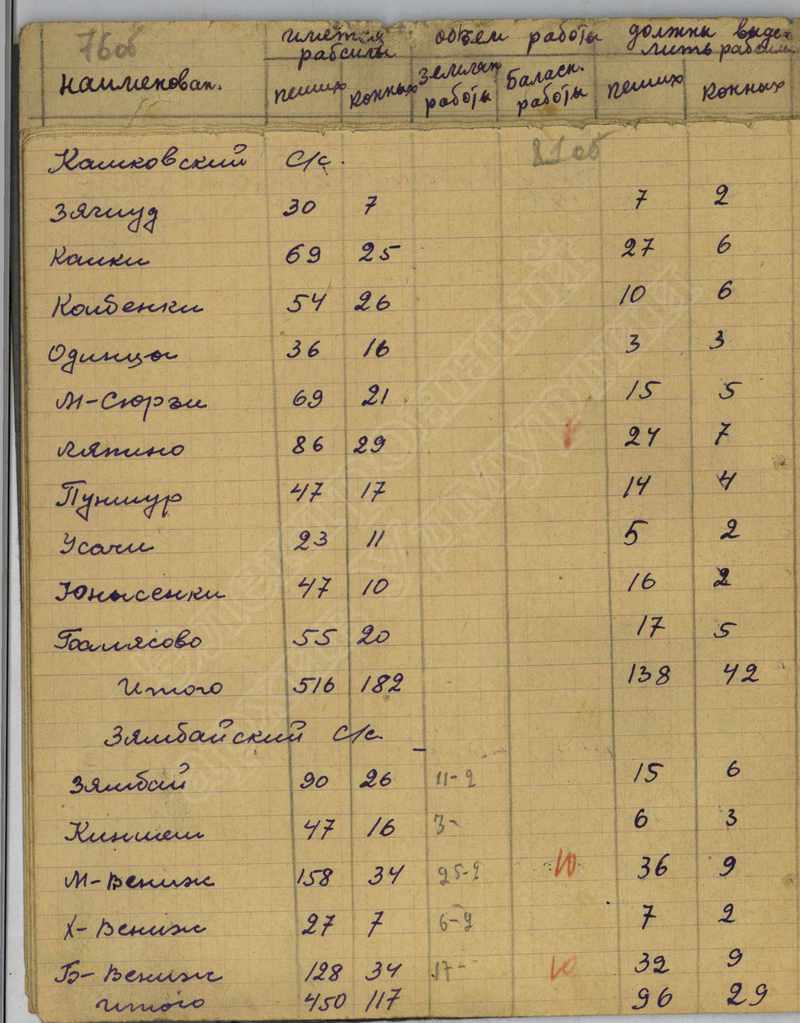 76об
имеется рабсилы объем работы должны выделить рабсилы
наименован. пеших конных землян работы баласн. работы пеших конных
Кашковский С/с. 81об
Зягиуд 30 7 7 2
Кашки 69 25 27 6
Колбенки 54 26 10 6
Одинцы 36 16 3 3
М-Сюрзи 69 21 15 5
Ляпино 86 29 24 7
Пуншур 47 17 14 4
Усачи 23 11 5 2
Юнысенки 47 10 16 2
55 20 17 5
Итого 516 182 138 42
Зямбайский С/с
Зямбай 90 26 11-2 15 6
47 16 3- 6 3
М-Вениж 158 34 25-2 10 36 9
Х-Вениж 27 7 6-2 7 2
Б-Вениж 128 34 17- 10 32 9
Итого 450 117 96 29